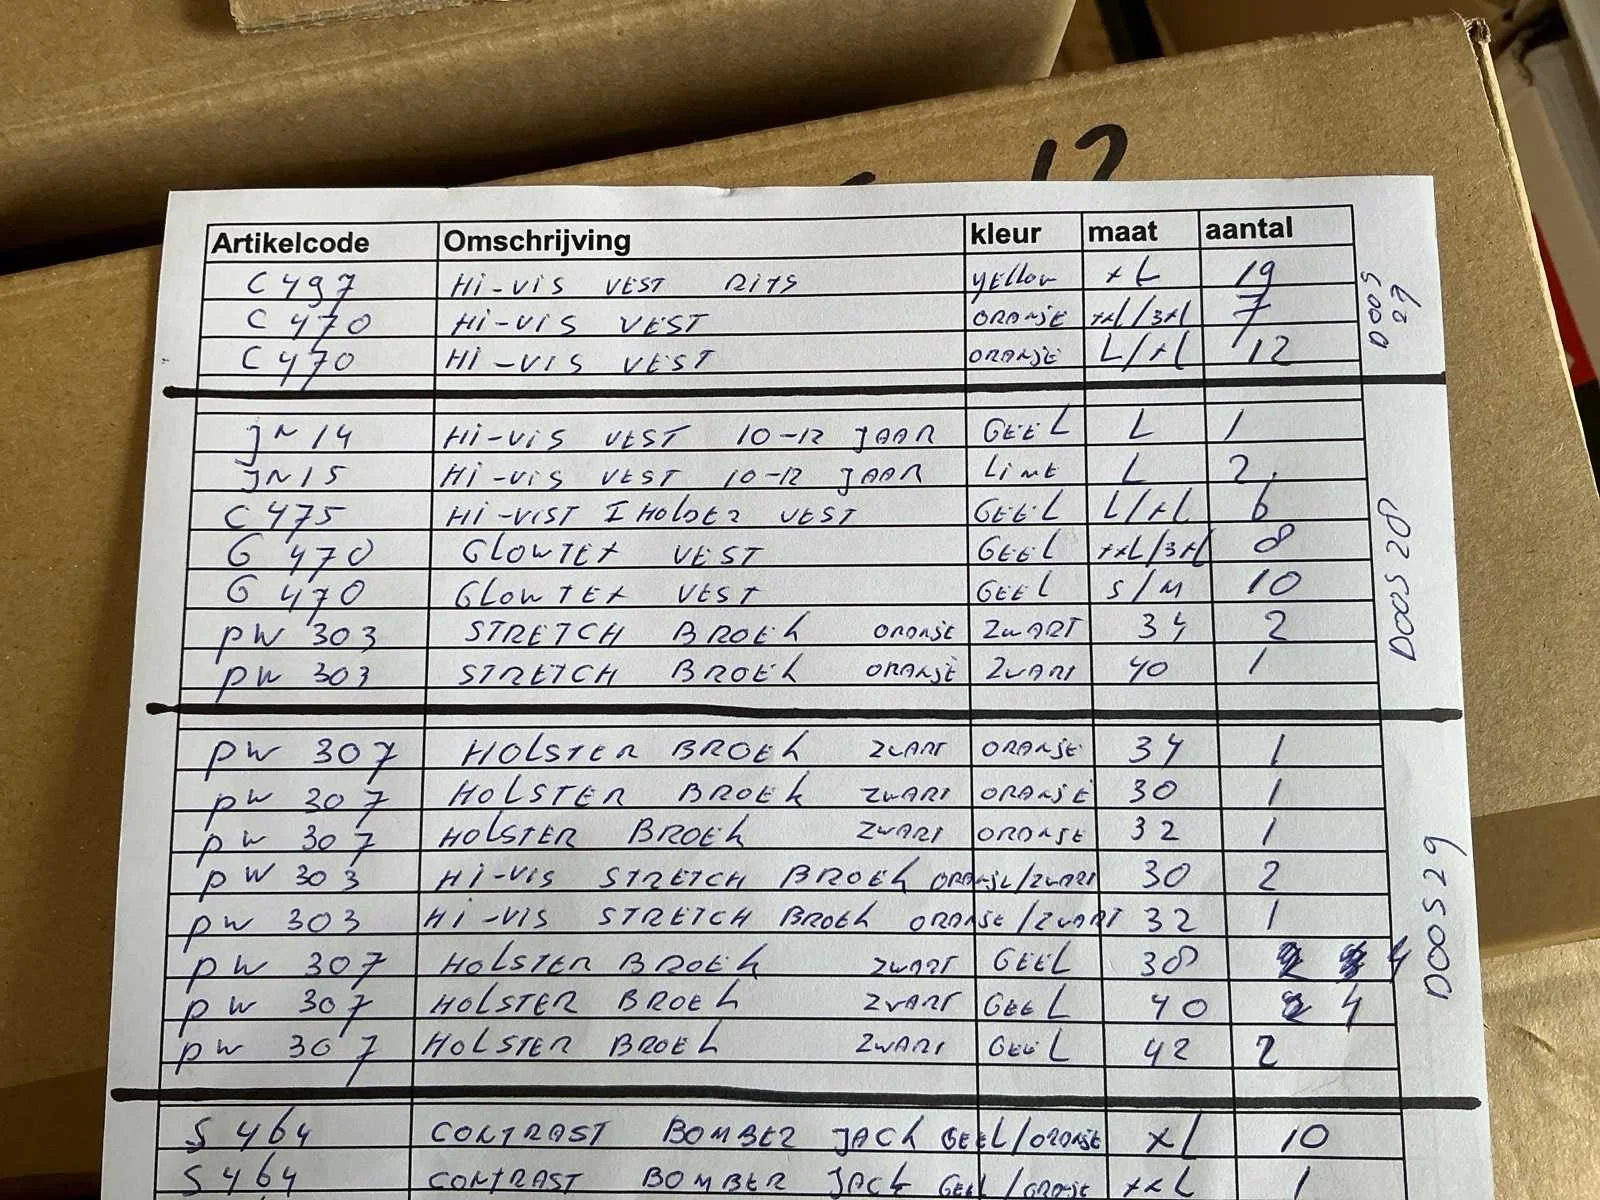 12
Artikelcode Omschrijving kleur maat aantal
C 497 Hi-VIS VEST RITS YELLOW XL 19
C 470 Hi-VIS VEST ORANJE XXL/3XL 7
C 470 Hi-VIS VEST ORANJE L/XL 12
DOOS 29
JN 14 Hi-VIS VEST 10-12 JAAR GEEL L 1
JN 15 Hi-VIS VEST 10-12 JAAR LIME L 2
C 475 Hi-VIST IHOLDER VEST GEEL L/XL 6
G 470 GLOWTEX VEST GEEL XXL/3XL 8
G 470 GLOWTEX VEST GEEL S/M 10
PW 303 STRETCH BROEK ORANJE ZWART 34 2
PW 303 STRETCH BROEK ORANJE ZWART 40 1
DOOS 28
PW 307 HOLSTER BROEK ZWART ORANJE 34 1
PW 307 HOLSTER BROEK ZWART ORANJE 30 1
PW 307 HOLSTER BROEK ZWART ORANJE 32 1
PW 303 Hi-VIS STRETCH BROEK ORANJE/ZWART 30 2
PW 303 Hi-VIS STRETCH BROEK ORANJE/ZWART 32 1
PW 307 HOLSTER BROEK ZWART GEEL 38 4
PW 307 HOLSTER BROEK ZWART GEEL 40 4
PW 307 HOLSTER BROEK ZWART GEEL 42 2
DOOS 29
S 464 CONTRAST BOMBER JACK GEEL/ORANJE XL 10
S 464 CONTRAST BOMBER JACK GEEL/ORANJE XXL 1